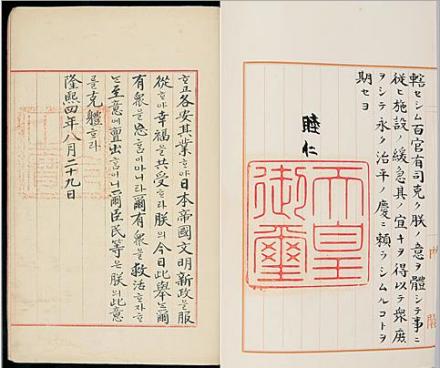 轄セシム百官有司克ク朕ノ意ヲ體シテ事ニ
從ヒ施設ノ緩急其ノ宜キヲ得以テ衆庶
ヲシテ永ク治平ノ慶ニ賴ラシムルコトヲ
期セヨ
睦仁
天皇
御璽
ᄒᆞ고各安其業ᄒᆞ야日本帝國文明新政을服
從ᄒᆞ야幸福을共受ᄒᆞ라朕의今日此擧ᄂᆞᆫ爾
有衆을忘홈이아니라爾有衆을救活ᄒᆞ자ᄒᆞ
ᄂᆞᆫ至意에亶出홈이니爾臣民等은朕의此意
를克體ᄒᆞ라
隆熙四年八月二十九日